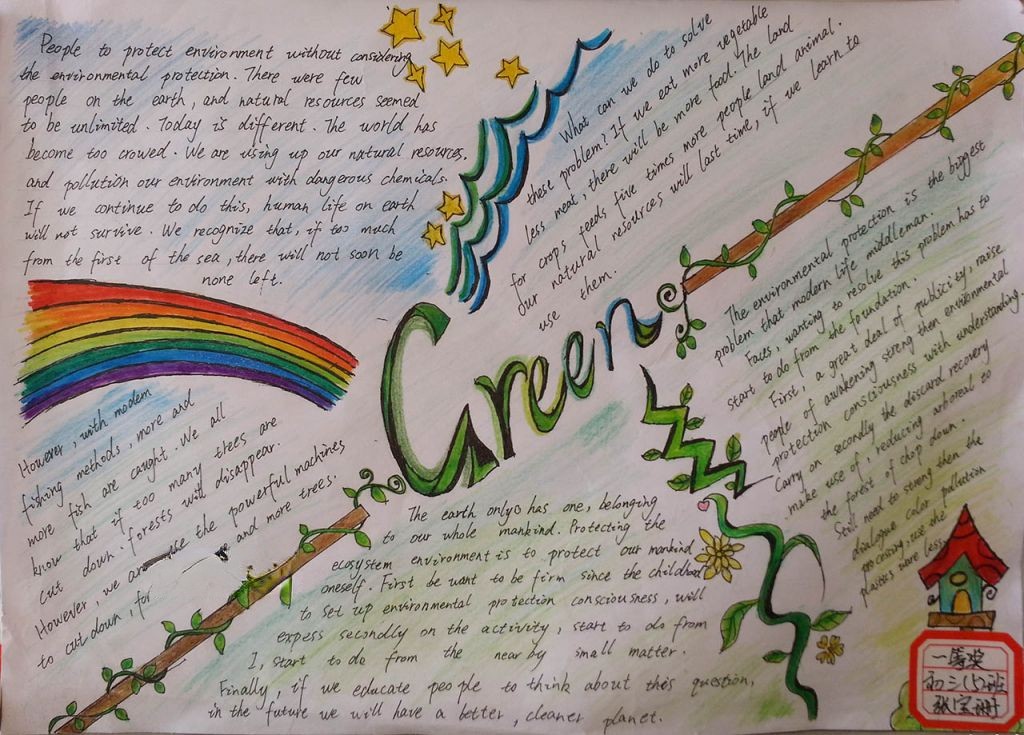 People to protect environment without considering
the environmental protection. There were few
people on the earth, and natural resources seemed
to be unlimited. Today is different. The world has
become too crowed. We are using up our natural resources,
and pollution our environment with dangerous chemicals.
If we continue to do this, human life on earth
will not survive. We recognize that, if too much
from the first of the sea, there will not soon be
none left.
What can we do to solve
these problem? If we eat more vegetable
less meat, there will be more food. The land
for crops feeds five times more people land animal.
Our natural resources will last time, if we learn to
use them.
Green
However, with modem
fishing methods, more and
more fish are caught. We all
know that if too many trees are
cut down. forests will disappear.
However, we are use the powerful machines
to cut down, for and more trees.
The environmental protection is the biggest
problem that modern life middleman.
Faces, wanting to resolve this problem has to
start to do from the foundation.
First, a great deal of publicity, raise
people of awakening streng then environmental
protection consciousness with understanding.
Carry on secondly the discard recovery
make use of, reducing arboreal to
the forest of chop down.
Still need to streng then the
dialogue color pollution
processing, use the
plastics were less.
The earth onlyo has one, belonging
to our whole mankind. Protecting the
ecosystem environment is to protect our mankind
oneself. First be want to be firm since the childhood
to set up environmental protection consciousness, will
expess secondly on the activity, start to do from
I, start to do from the near by small matter.
Finally, if we educate people to think about this question,
in the future we will have a better, cleaner planet.
初三(15)班